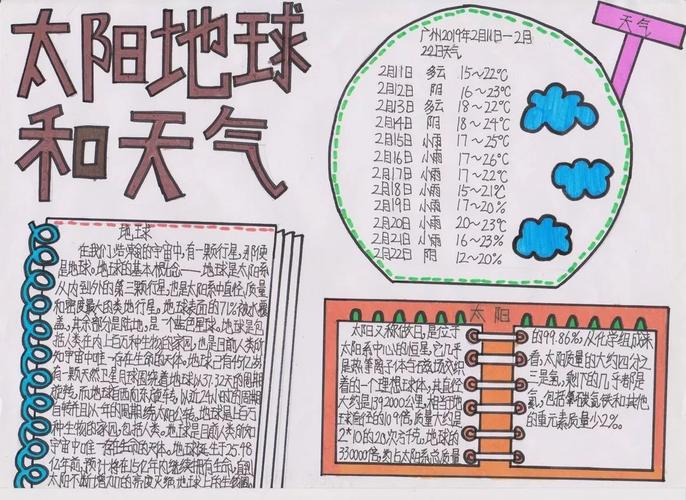 太阳地球
和天气
天气
广州2019年2月11日—2月
22日天气
2月11日 多云 15~22℃
2月12日 阴 16~23℃
2月13日 多云 18~22℃
2月14日 阴 18~24℃
2月15日 小雨 17~25℃
2月16日 小雨 17~26℃
2月17日 小雨 17~22℃
2月18日 小雨 15~21℃
2月19日 小雨 17~20%
2月20日 小雨 20~23℃
2月21日 小雨 16~23%
2月22日 阴 12~20%
地球
在我们浩瀚的宇宙中,有一颗行星,那便
是地球。地球的基本概念——地球是太阳系
从内到外的第三颗行星,也是太阳系中直径、质量
和密度最大的类地行星。地球表面的71%被水覆
盖,其余部分是陆地,是一个蓝色星球。地球是包
括人类在内上百万种生物的家园,也是目前人类所
知宇宙中唯一存在生命的天体。地球已有45亿岁,
有一颗天然卫星月球围绕着地球以27.32天的周期
旋转,而地球自西向东旋转,以近24小时的周期
自转并且以一年的周期绕太阳公转。地球是上百万
种生物的家园,包括人类。地球是目前人类所知
宇宙中唯一存在生命的天体。地球诞生于25.48
亿年前,预计将在15亿年内继续拥有生命,直到
太阳不断增加的亮度灭绝地球上的生物圈。
太阳
太阳又称依日,是位于
太阳系中心的恒星,它几乎
是热等离子体与磁场交织
着的一个理想球体,其直径
大约是1392000公里,相当于地
球直径的109倍,质量大约是
2*10的20次方千克。地球的
330000倍,约占太阳系总质量
的99.86%,从化学组成来
看,太阳质量的大约四分之
三是氢,剩下的几乎都是
氦,包括氧碳氖铁和其他
的重元素质量少2%。